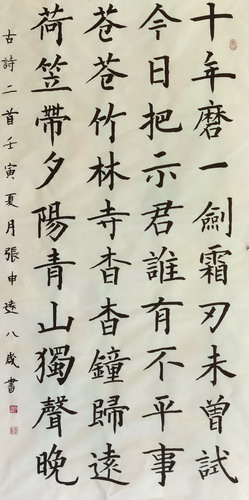 十年磨一劍霜刃未曾試
今日把示君誰有不平事
蒼蒼竹林寺杳杳鐘歸遠
荷笠帶夕陽青山獨聲晚
古詩二首壬寅夏月張申逺八歲書